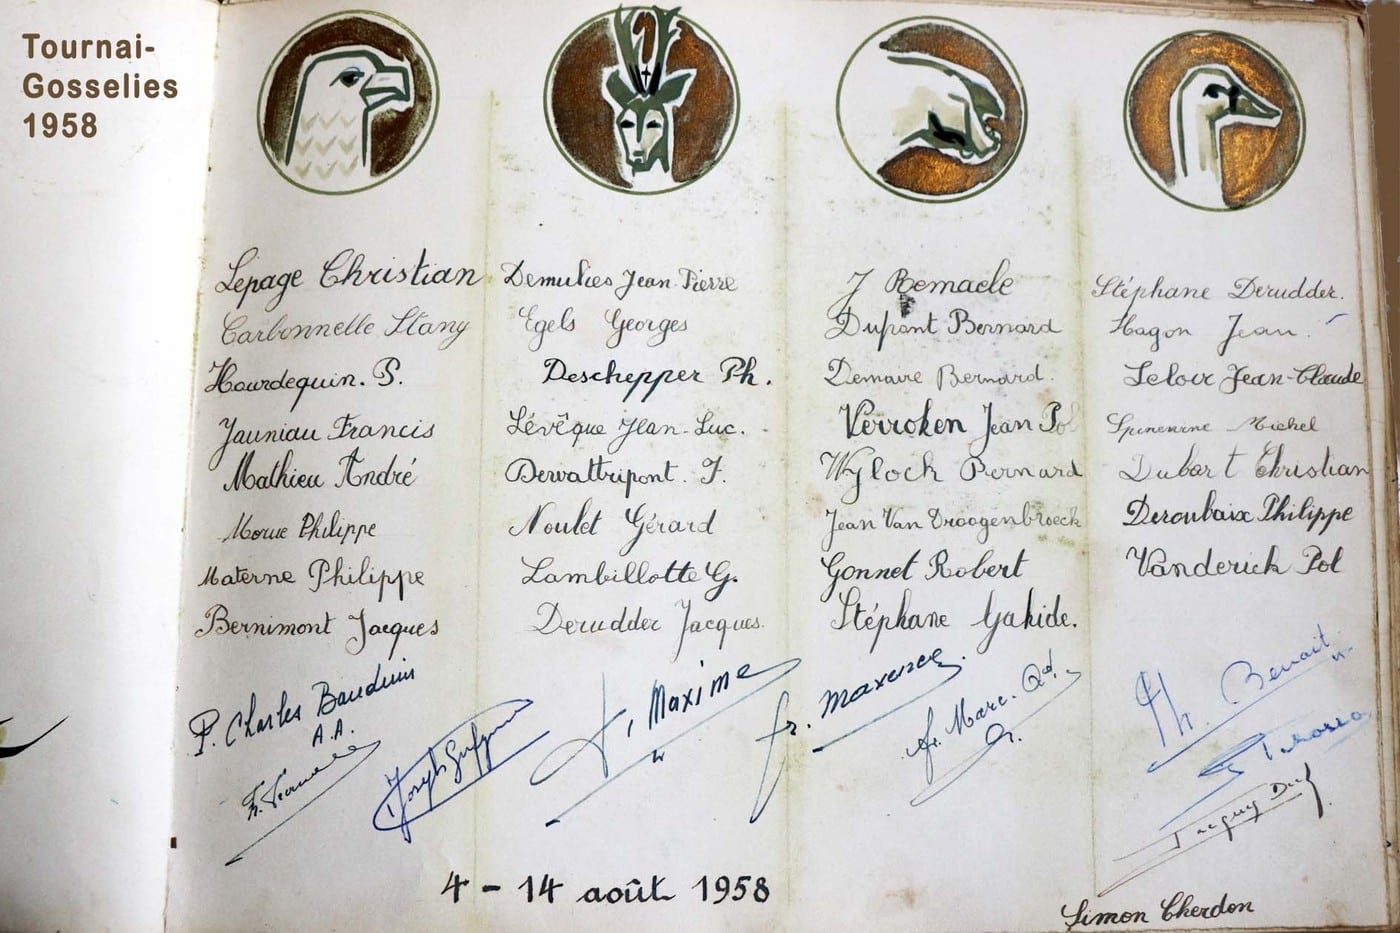 Tournai-
Gosselies
1958
Lepage Christian
Carbonnelle Stany
Hourdequin. P.
Jauniau Francis
Mathieu André
Philippe
Materne Philippe
Bernimont Jacques
Demulies Jean-Pierre
Egels Georges
Deschepper Ph.
Lévêque Jean-Luc.
Dewattripont. F.
Noulet Gérard
Lambillotte G.
Derudder Jacques.
J Remacle
Dupont Bernard
Demaire Bernard.
Verroken Jean Pol
Wylock Bernard
Jean Van Droogenbroeck
Gonnet Robert
Stéphane Gahide.
Stéphane Derudder.
Hagon Jean.
Leloir Jean-Claude
Michel
Dubart Christian
Deroubaix Philippe
Vanderick Pol
P. Charles Baudouin
A.A.
Joseph
Maxime
fr.
fr. Marc.
Benoit
4 - 14 août 1958
Simon Cherdon